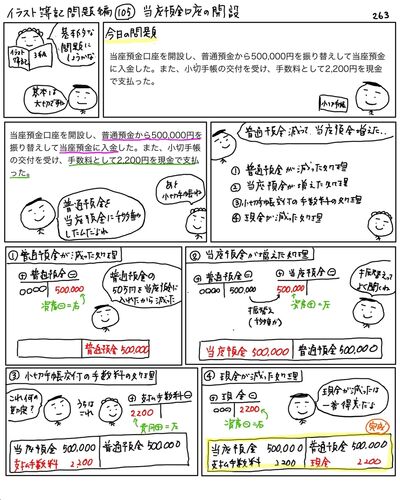 イラスト簿記問題編 105 当座預金口座の開設
263
基本的な
問題に
しようかな
イラスト
簿記
3級
基本は
大切ですね
今日の問題
当座預金口座を開設し、普通預金から500,000円を振り替えして当座預金
に入金した。また、小切手帳の交付を受け、手数料として2,200円を現金
で支払った。
小切手帳
当座預金口座を開設し、普通預金から500,000円を
振り替えして当座預金に入金した。また、小切手帳
の交付を受け、手数料として2,200円を現金で支払っ
た。
普通預金を
当座預金に移動
したんだね
あと
小切手帳ね
普通預金減って、当座預金増えた..
① 普通預金が減った処理
② 当座預金が増えた処理
③ 小切手帳交付の手数料の処理
④ 現金が減った処理
① 普通預金が減った処理
⊕ 普通預金 ⊖
0000 500,000
資産⊖=右
普通預金の
50万円を当座預金に
入れたから減った
普通預金 500,000
② 当座預金が増えた処理
⊕ 普通預金 ⊖
0000 500,000
⊕ 当座預金 ⊖
500,000
振替え
(移動)
資産⊕=左
振替えって
よく聞くわ
当座預金 500,000 普通預金 500,000
③ 小切手帳交付の手数料の処理
これくずの
勘定?
うちは
これ
⊕ 支払手数料 ⊖
2200
費用⊕=左
当座預金 500,000 普通預金 500,000
支払手数料 2200
④ 現金が減った処理
⊕ 現金 ⊖
2200
資産⊖=右
現金が減ったは
一番得意だよ
完成
当座預金 500,000 普通預金 500,000
支払手数料 2200 現金 2200